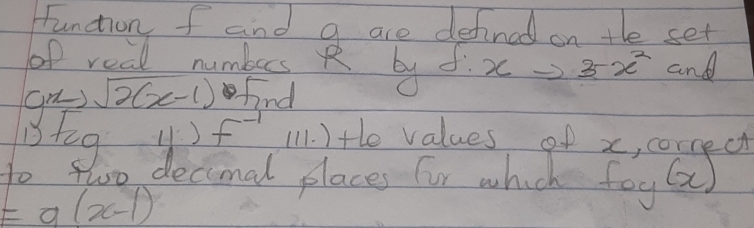 Function f and g are defined on the set
of real numbers R by f: x → 3-x² and
g:x→ √2(x-1) find
i) fog ii.) f⁻¹ iii.) the values of x, correct
to two decimal places for which fog(x)
= g(x-1)